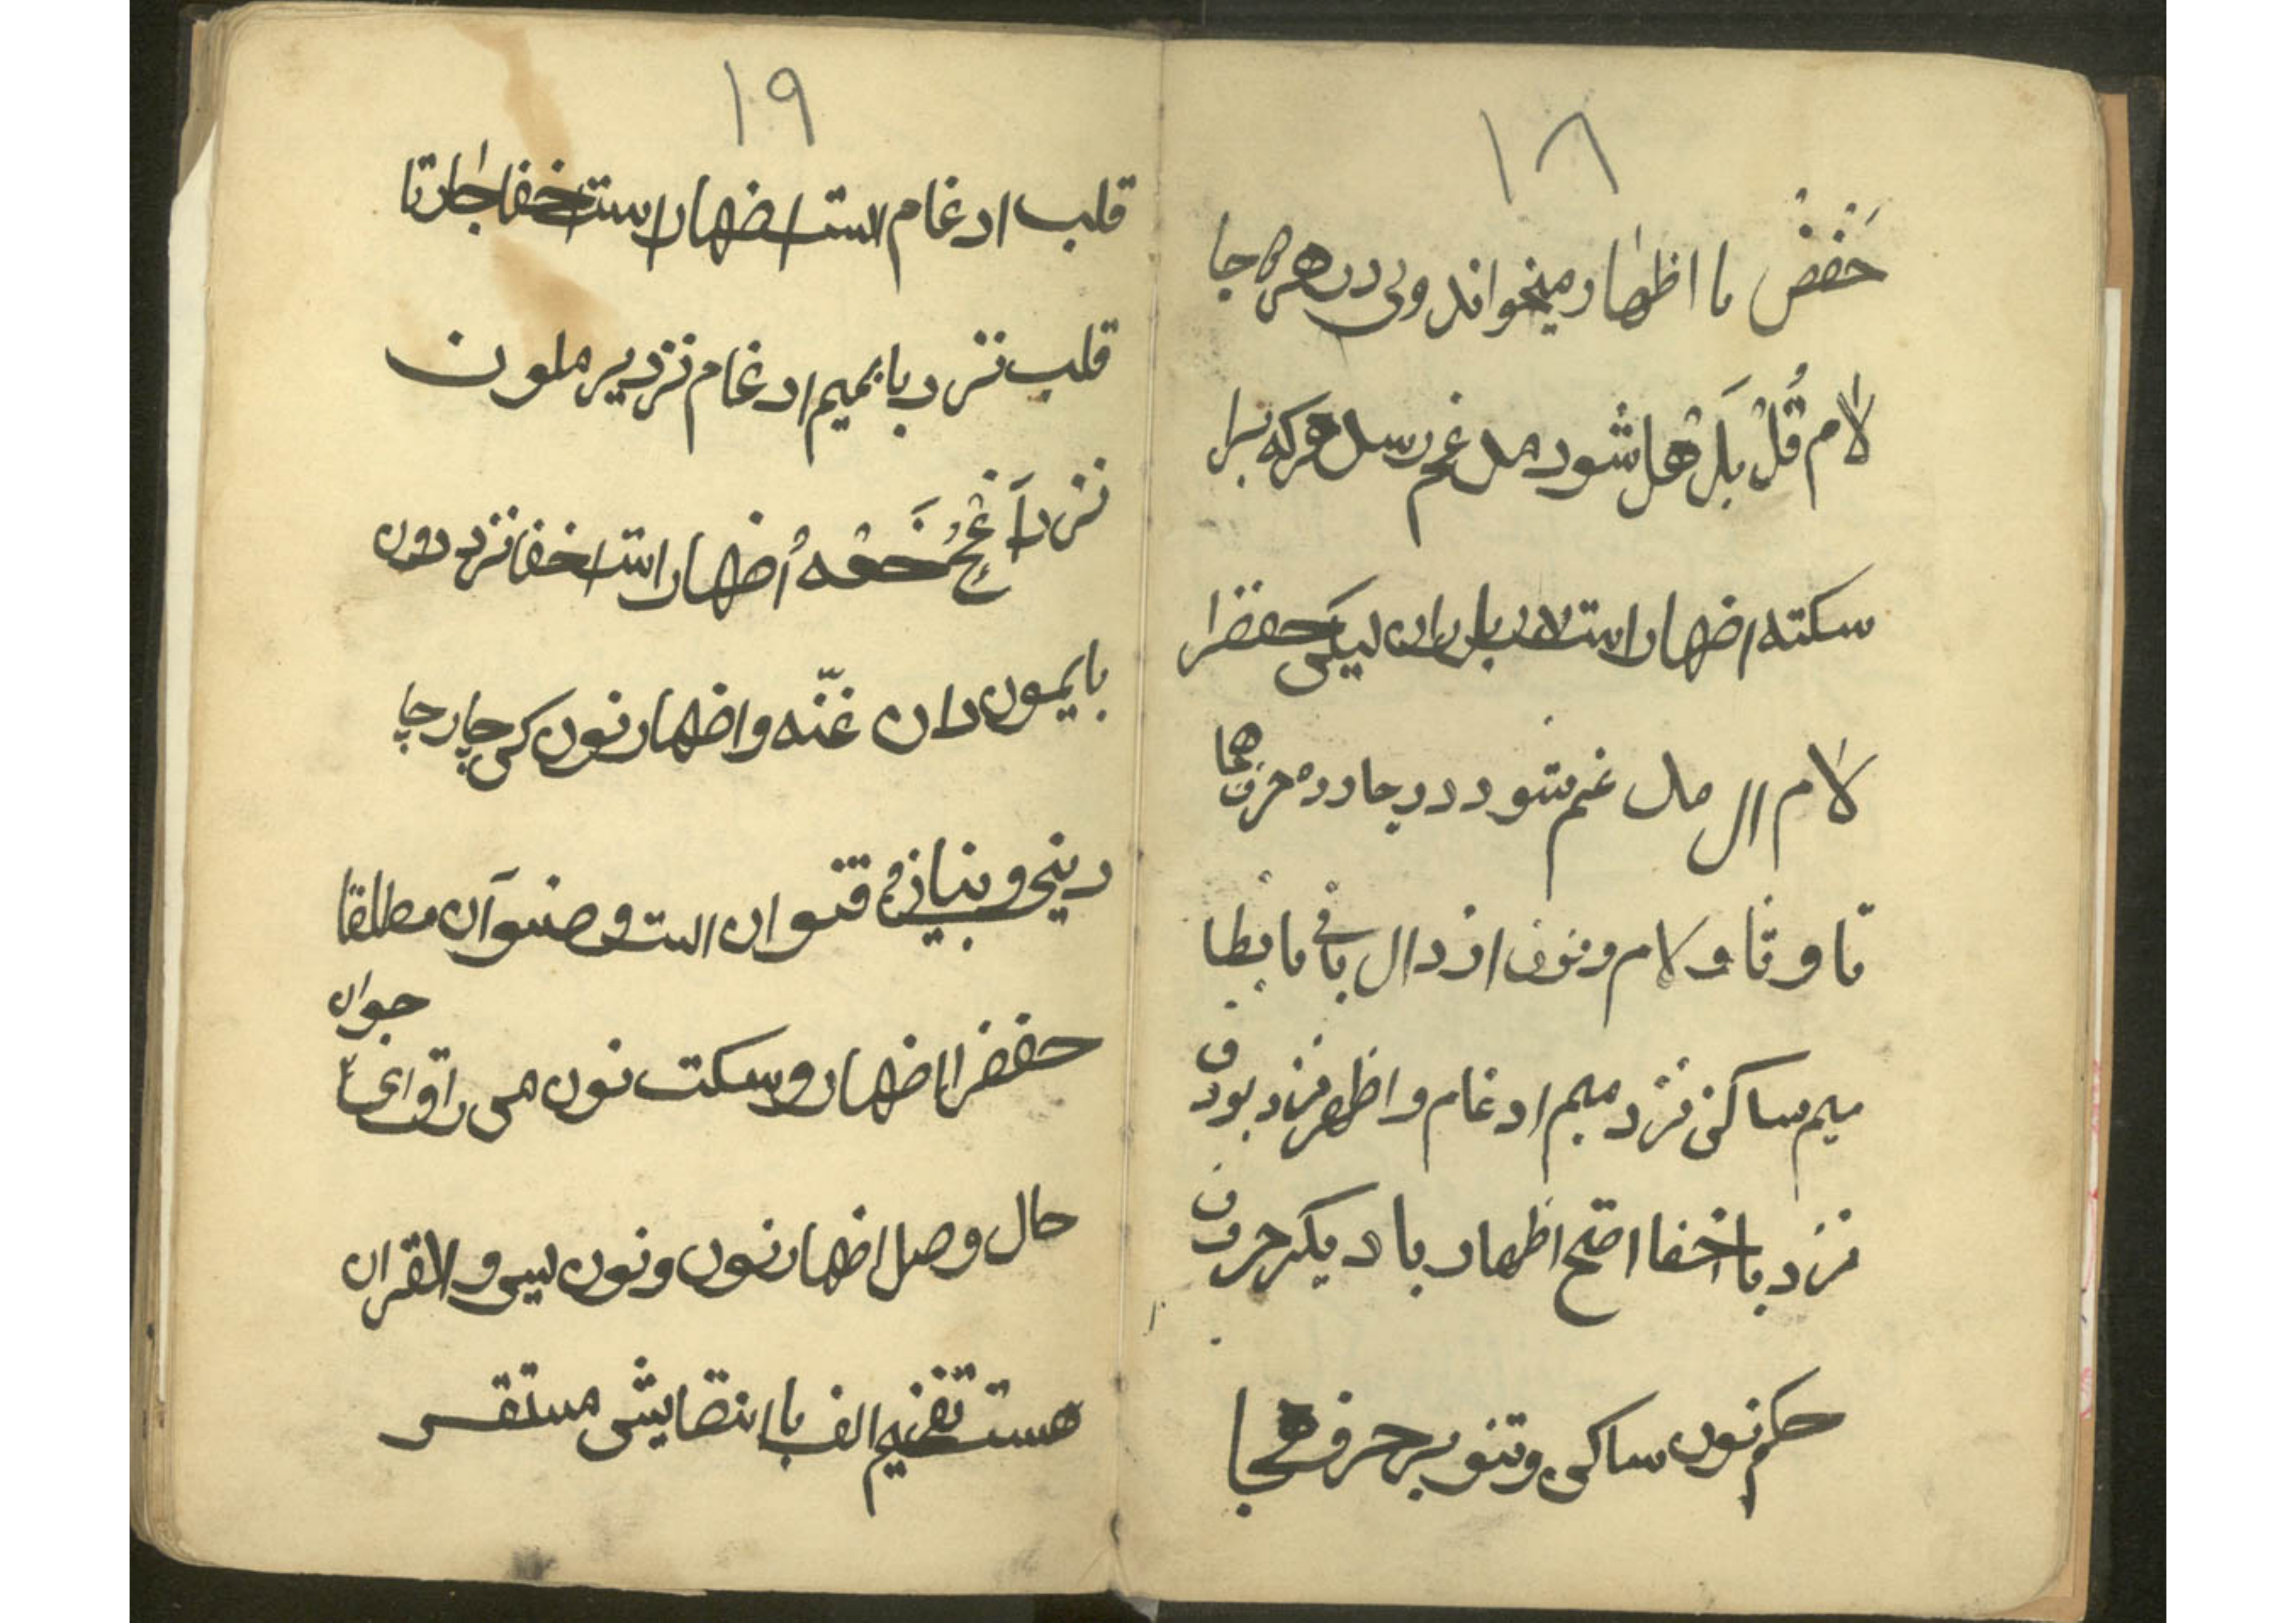 ١٨
حَفَضْ با اظهار میخواند ولی در هر جا
لام قُلْ بَلْ هل شود مدغم رسد هرکه برا
سکته اضهار است لام بل ران لیکی حفضرا
لام ال مدغم شود در جارده حرف هجا
تا و ثا و لام و نون از دال باقی تا بظا
میم ساکن نزد میم ادغام و اظهر نزد بوف
نزد با اخفا اصح اظهار با دیگر حروف
حکم نون ساکن و تنوین بر حرف هجا
١٩
قلب ادغام است اضهار است اخفا
قلب نزد با بمیم ادغام نزد یرملون
نزد اضهار است اخفا نزد دون
با یمون دان غنّه و اضهار نون کن چار جا
دینی و بنیان قنوان است و صنوان مطلقا
حفضرا اضهار و سکت نون من راق ای جوان
حال وصل اضهار نون و نون یس و القران
هست تفخیم الف با انقایش مستقر